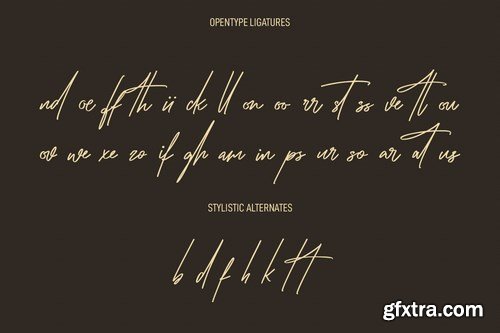 OPENTYPE LIGATURES
nd oe ff th ii ck ll on oo rr st ss ve tt ou
ov we xe zo if gh am in ps ur so ar at us
STYLISTIC ALTERNATES
b d f h k t t
gfxtra.com